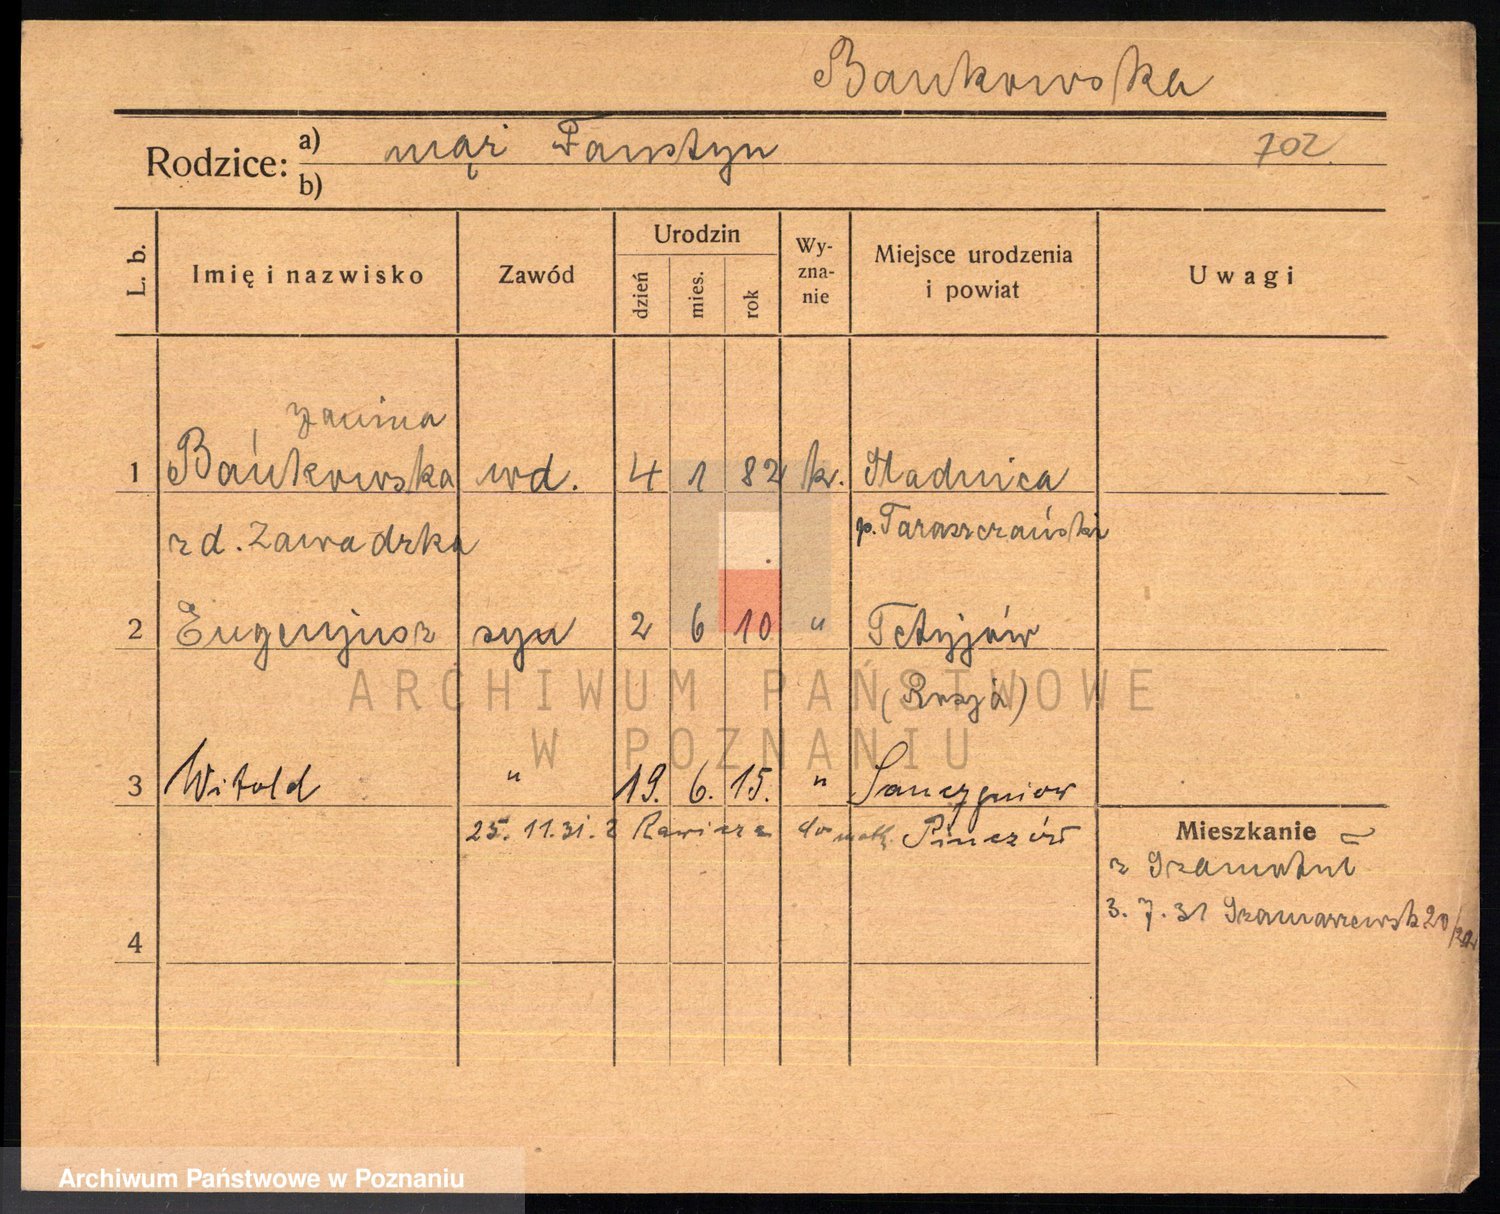 Bankowska
Rodzice: a) mąż Faustyn 702.
b)
L. b. Imię i nazwisko Zawód Urodzin dzień mies. rok Wy-zna-nie Miejsce urodzenia i powiat Uwagi
Janina
1 Bańkowska wd. 4 1 82 k. Stadnica
zd. Zawadzka p. Taraszczański
2 Eugenjusz syn 2 6 10 " Tetyjów
(Rosja)
3 Witold " 19. 6. 15. " Sancygniow
25. 11. 31. z Rawicza do matk. Pinczów
Mieszkanie
z Szamotuł
3. 7. 31 Szamarzewsk 20
4
ARCHIWUM PAŃSTWOWE
W POZNANIU
Archiwum Państwowe w Poznaniu